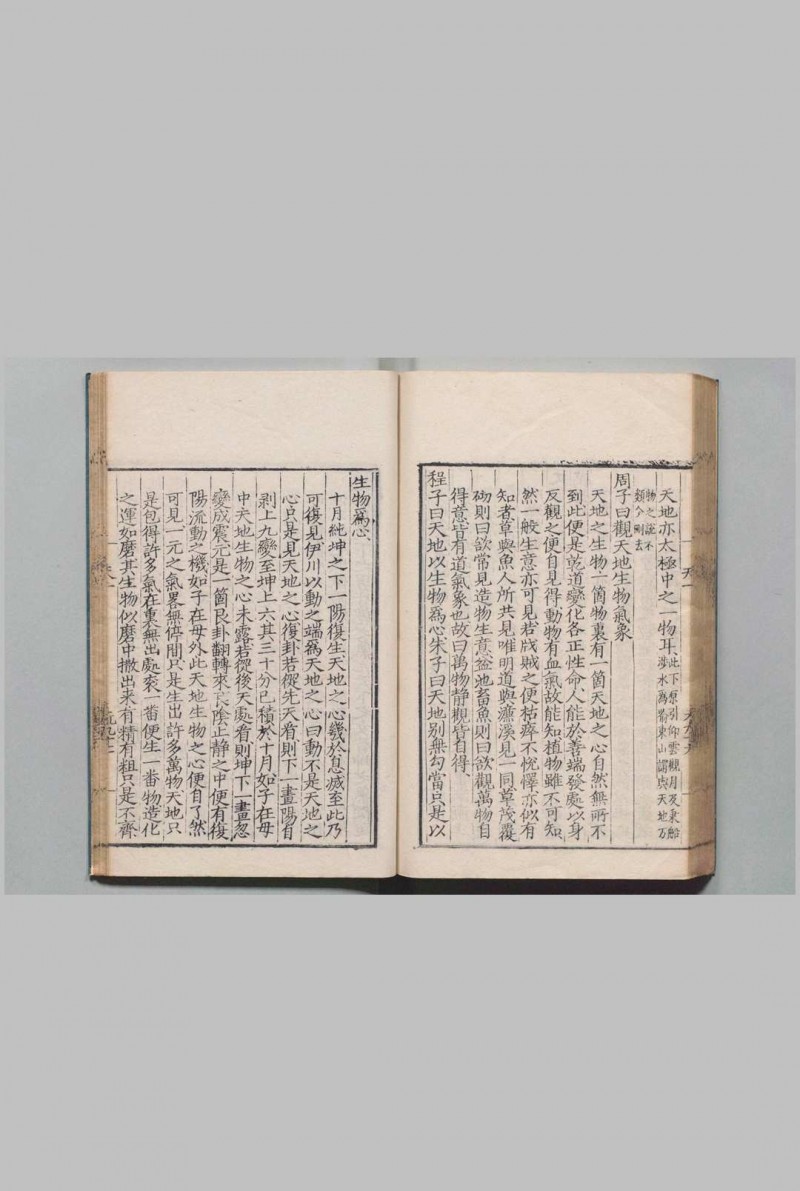 天地亦太極中之一物耳此下原引仰雲觀月及東船
涉水為蜀東山謂與天地万
物之証不
類今刪去
周子曰觀天地生物氣象
天地之生物一箇物裏有一箇天地之心自然無所不
到此便是乾道變化各正性命人能於善端發處以身
反觀之便自見得動物有血氣故能知植物雖不可知
然一般生意亦可見若戕賊之便枯瘁不恱懌亦似有
知者草與魚人所共見唯明道與濂溪見一同草茂覆
砌則曰欲常見造物生意盆池畜魚則曰欲觀萬物自
得意皆有道氣象也故曰萬物静觀皆自得
程子曰天地以生物爲心朱子曰天地别無勾當只是以
生物爲心
十月純坤之下一陽復生天地之心幾於息滅至此乃
可復見伊川以動之端爲天地之心曰動不是天地之
心只是見天地之心復卦若從先天看則下一畫陽自
剥上九變至坤上六其三十分已積於十月如子在母
中天地生物之心未露若從後天處看則坤下一畫忽
變成震元是一箇艮卦翻轉來陰止静之中便有復
陽流動之機如子在母外此天地生物之心便自了然
可見一元之氣畧無停間只是生出許多萬物天地只
是包得許多氣在裏無出處衮一番便生一番物造化
之運如磨其生物似磨中撒出来有精有粗只是不齊